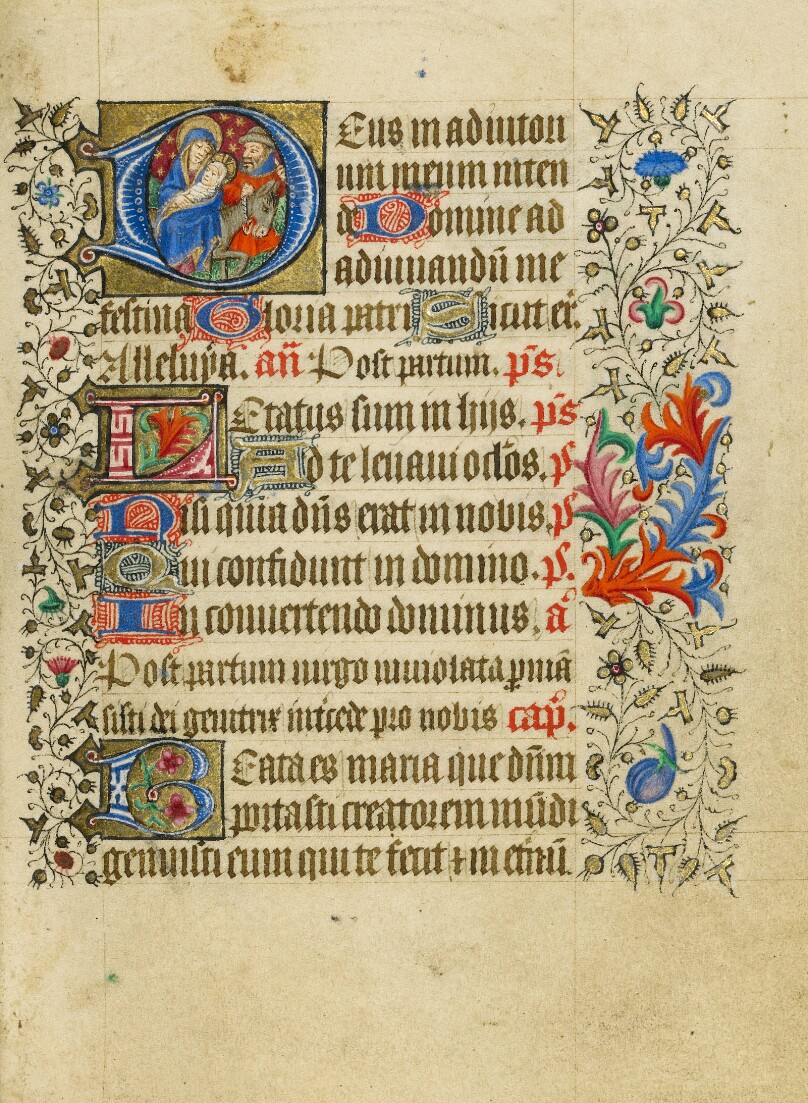 Deus in adiutori
um meum inten
de Domine ad
adiuuandū me
festina Gloria patri Sicut er̄.
Alleluya. añ Post partum. p̄s.
Letatus sum in hijs. p̄s
Ad te leuaui oc̄los. p̄.
Nisi quia dn̄s erat in nobis. p̄
Qui confidunt in domino. p̄.
In conuertendo dominus. a̅
Post partum uirgo inuiolata ꝑmā
sisti dei genitrix int̄cede pro nobis cap̄.
Beata es maria que dn̄m
portasti creatorem mūdi
genuisti eum qui te fecit ⁊ in et̄nū.